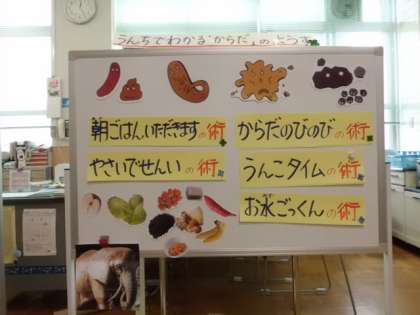 うんちでわかる"からだ"のようす
朝ごはんいただきますの術
やさいでせんいの術
からだのびのびの術
うんこタイムの術
お水ごっくんの術